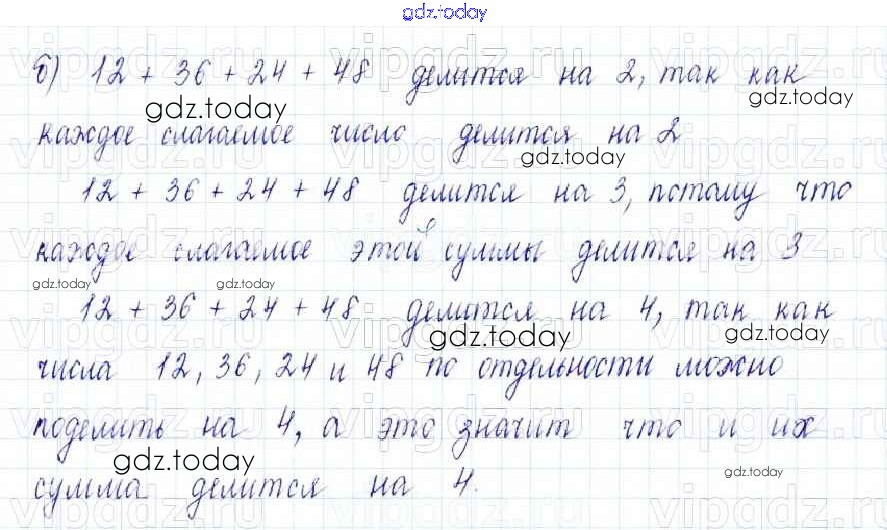 gdz.today
б) 12 + 36 + 24 + 48 делится на 2, так как
gdz.today
gdz.today
каждое слагаемое число делится на 2
gdz.today
12 + 36 + 24 + 48 делится на 3, потому что
каждое слагаемое этой суммы делится на 3
gdz.today
gdz.today
12 + 36 + 24 + 48 делится на 4, так как
gdz.today
gdz.today
числа 12, 36, 24 и 48 по отдельности можно
поделить на 4, а это значит что и их
gdz.today
gdz.today
сумма делится на 4.